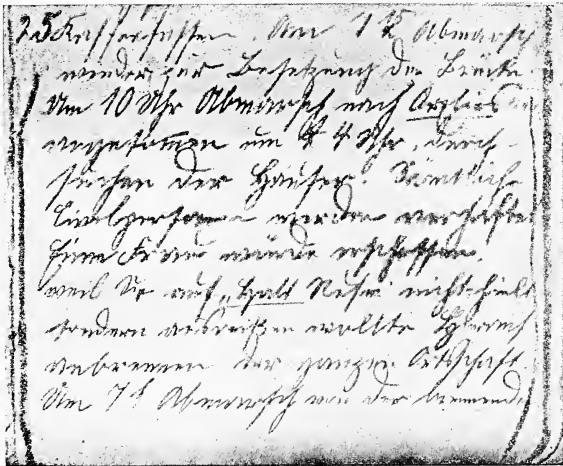 25 Kafferfassen. Um 1 15 Abmarsch
wieder zur Besetzung der Brücke
Um 10 Uhr Abmarsch nach
angekommen um 4 Uhr, durch
suchen der Häuser Sämtliche
Civilpersonen werden verhaftet
Eine Frau wurde erschossen,
weil Sie auf „Halt Rufen" nicht hielt
sondern ausreißen wollte Hierauf
anbrennen der ganzen Ortschaft.
Um 7 Abmarsch von der brennenden